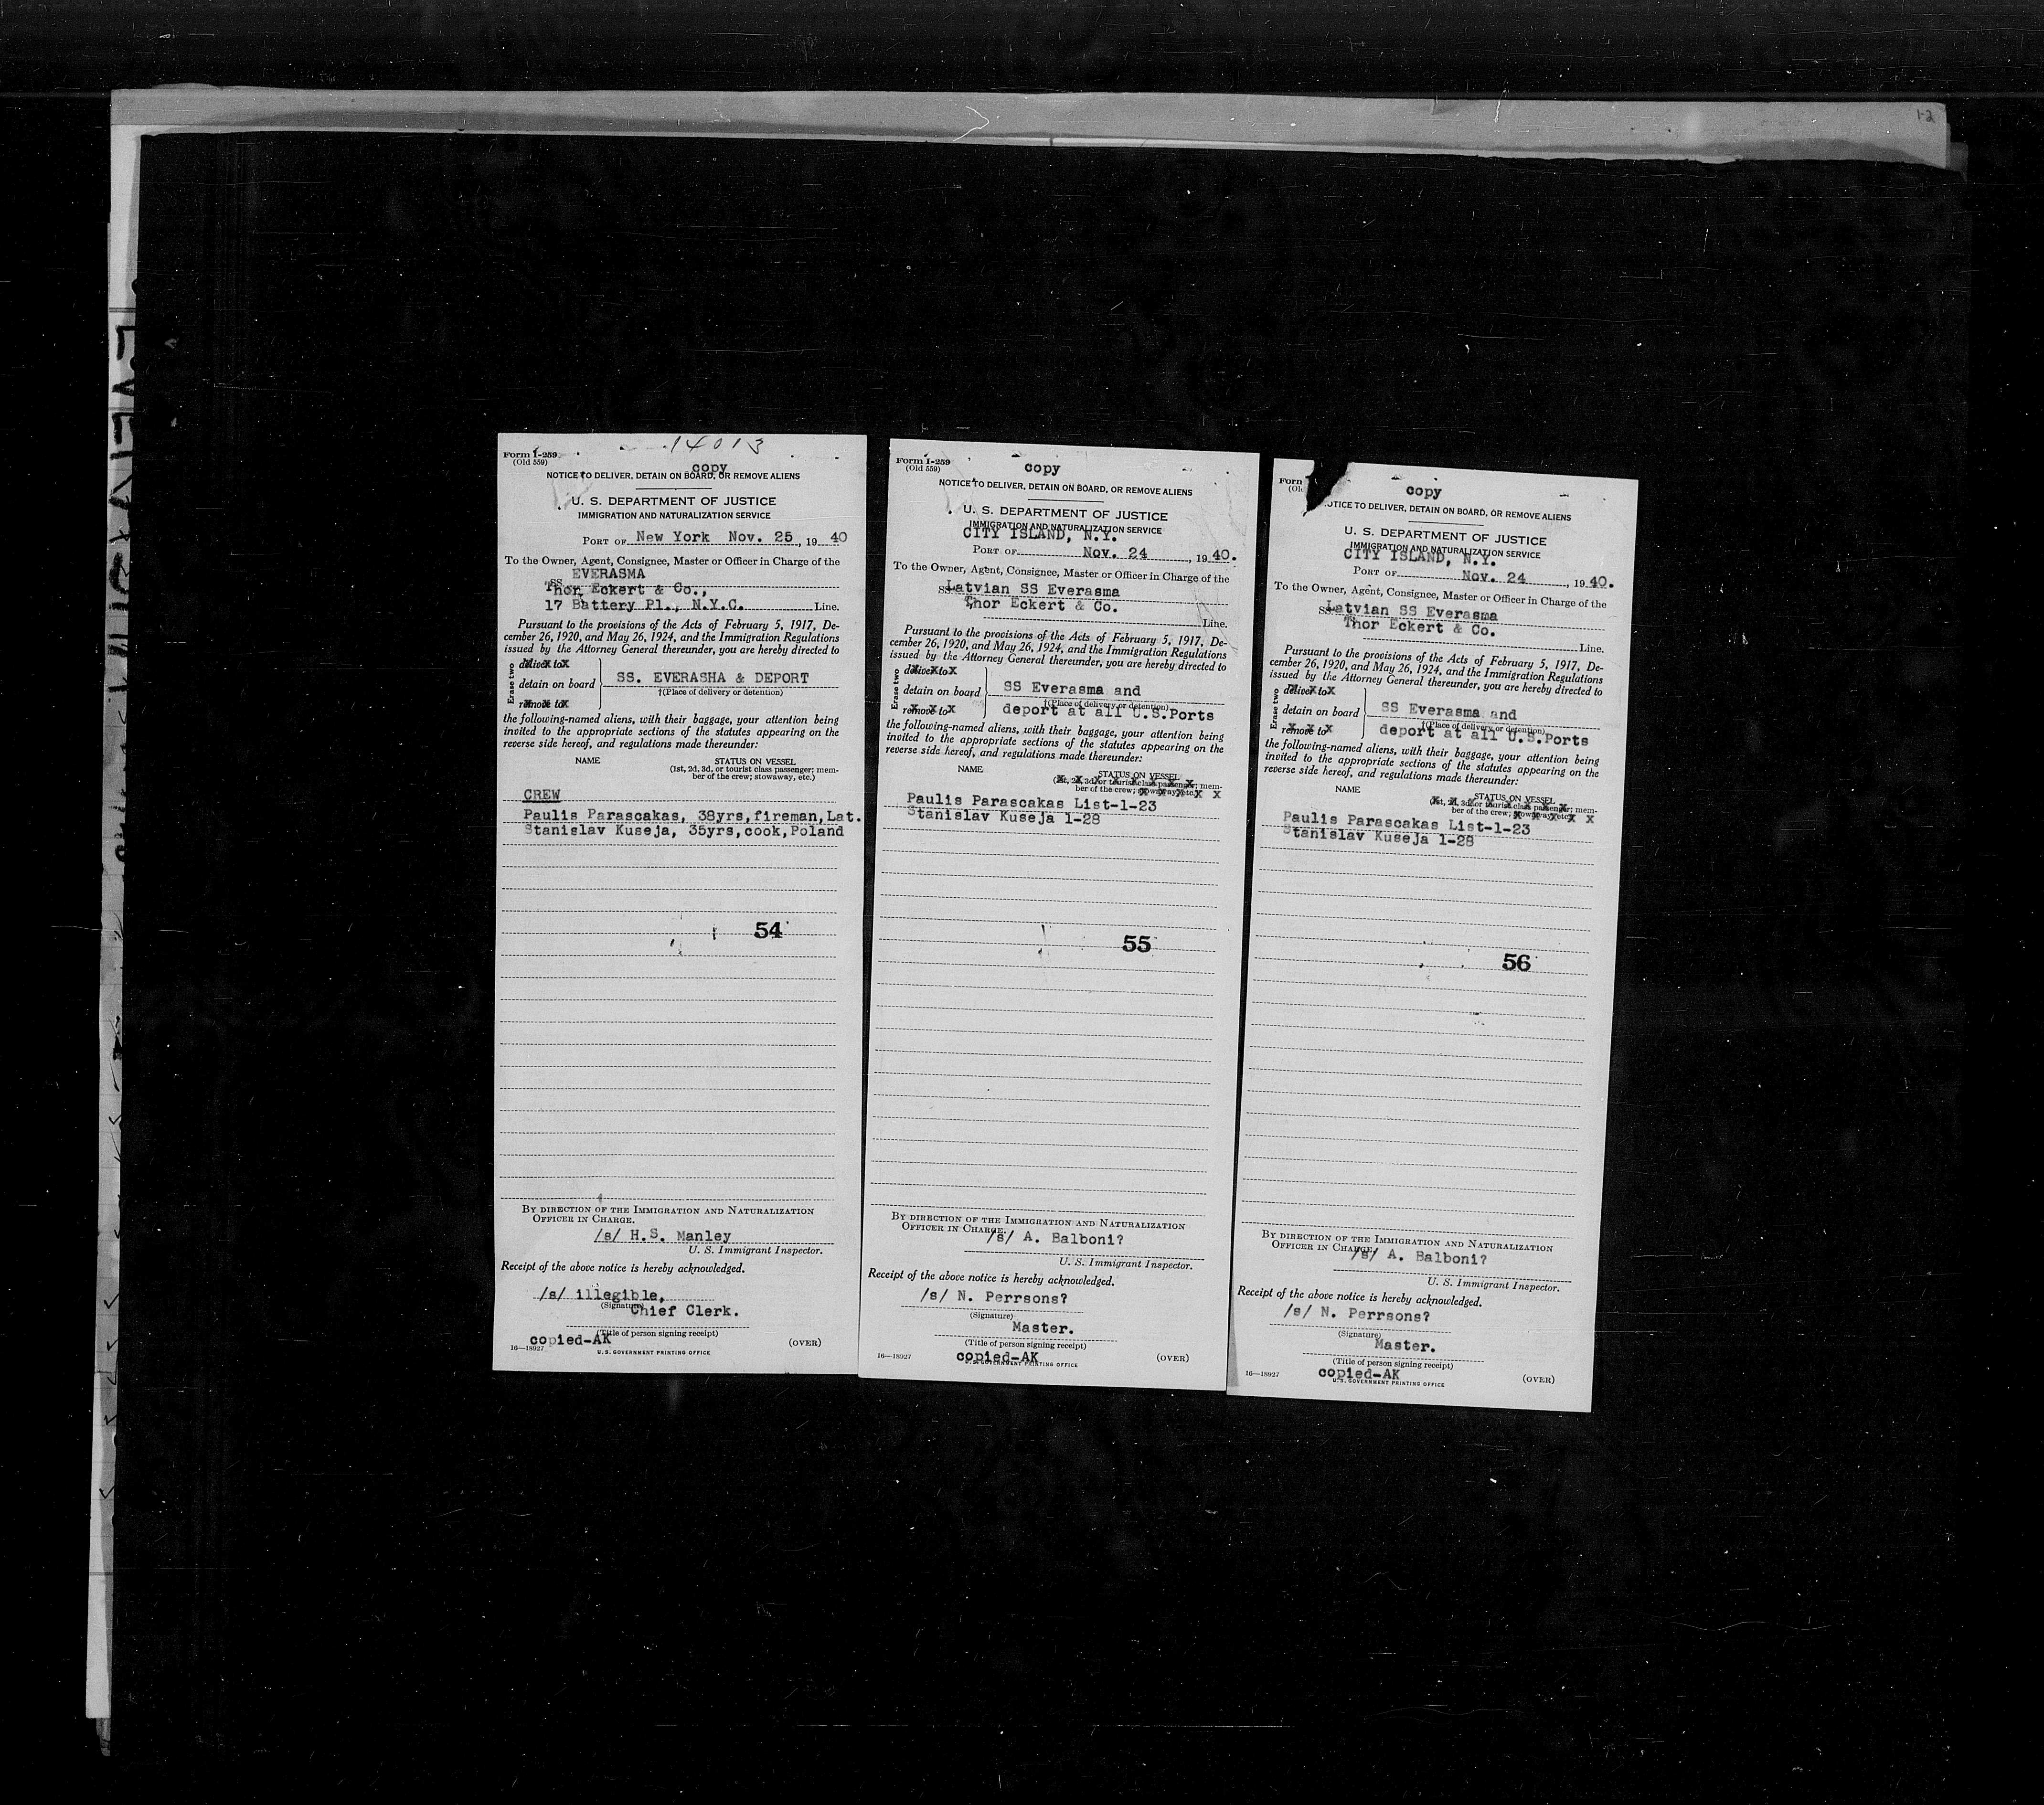 1-2
14013
Form I-259
(Old 559)
copy
NOTICE TO DELIVER, DETAIN ON BOARD, OR REMOVE ALIENS
U. S. DEPARTMENT OF JUSTICE
IMMIGRATION AND NATURALIZATION SERVICE
PORT OF New York Nov. 25, 19 40
To the Owner, Agent, Consignee, Master or Officer in Charge of the
EVERASMA
SS.
Thor Eckert & Co.,
17 Battery Pl., N.Y.C. Line.
Pursuant to the provisions of the Acts of February 5, 1917, De-
cember 26, 1920, and May 26, 1924, and the Immigration Regulations
issued by the Attorney General thereunder, you are hereby directed to
Erase two
deliver to
detain on board SS. EVERASHA & DEPORT
†(Place of delivery or detention)
remove to
the following-named aliens, with their baggage, your attention being
invited to the appropriate sections of the statutes appearing on the
reverse side hereof, and regulations made thereunder:
NAME STATUS ON VESSEL
(1st, 2d, 3d, or tourist class passenger; mem-
ber of the crew; stowaway, etc.)
CREW
Paulis Parascakas, 38yrs,fireman,Lat.
Stanislav Kuseja, 35yrs,cook,Poland
54
BY DIRECTION OF THE IMMIGRATION AND NATURALIZATION
OFFICER IN CHARGE.
/s/ H.S. Manley
U. S. Immigrant Inspector.
Receipt of the above notice is hereby acknowledged.
/s/ illegible,
(Signature)
Chief Clerk.
(Title of person signing receipt)
copied-AK
(OVER)
16—18927
U.S. GOVERNMENT PRINTING OFFICE
Form I-259
(Old 559)
copy
NOTICE TO DELIVER, DETAIN ON BOARD, OR REMOVE ALIENS
U. S. DEPARTMENT OF JUSTICE
IMMIGRATION AND NATURALIZATION SERVICE
CITY ISLAND, N.Y.
PORT OF Nov. 24, 19 40.
To the Owner, Agent, Consignee, Master or Officer in Charge of the
SS. Latvian SS Everasma
Thor Eckert & Co.
Line.
Pursuant to the provisions of the Acts of February 5, 1917, De-
cember 26, 1920, and May 26, 1924, and the Immigration Regulations
issued by the Attorney General thereunder, you are hereby directed to
Erase two
deliver to
detain on board SS Everasma and
†(Place of delivery or detention)
remove to deport at all U.S.Ports
the following-named aliens, with their baggage, your attention being
invited to the appropriate sections of the statutes appearing on the
reverse side hereof, and regulations made thereunder:
NAME STATUS ON VESSEL
(1st, 2d, 3d, or tourist class passenger; mem-
ber of the crew; stowaway, etc.)
Paulis Parascakas List-1-23
Stanislav Kuseja 1-28
55
BY DIRECTION OF THE IMMIGRATION AND NATURALIZATION
OFFICER IN CHARGE.
/s/ A. Balboni?
U. S. Immigrant Inspector.
Receipt of the above notice is hereby acknowledged.
/s/ N. Perrsons?
(Signature)
Master.
(Title of person signing receipt)
copied-AK
16—18927
U.S. GOVERNMENT PRINTING OFFICE
(OVER)
Form
copy
NOTICE TO DELIVER, DETAIN ON BOARD, OR REMOVE ALIENS
U. S. DEPARTMENT OF JUSTICE
IMMIGRATION AND NATURALIZATION SERVICE
CITY ISLAND, N.Y.
PORT OF Nov. 24, 19 40.
To the Owner, Agent, Consignee, Master or Officer in Charge of the
SS. Latvian SS Everasma
Thor Eckert & Co.
Line.
Pursuant to the provisions of the Acts of February 5, 1917, De-
cember 26, 1920, and May 26, 1924, and the Immigration Regulations
issued by the Attorney General thereunder, you are hereby directed to
Erase two
deliver to
detain on board SS Everasma and
†(Place of delivery or detention)
remove to deport at all U.S.Ports
the following-named aliens, with their baggage, your attention being
invited to the appropriate sections of the statutes appearing on the
reverse side hereof, and regulations made thereunder:
NAME STATUS ON VESSEL
(1st, 2d, 3d, or tourist class passenger; mem-
ber of the crew; stowaway, etc.)
Paulis Parascakas List-1-23
Stanislav Kuseja 1-28
56
BY DIRECTION OF THE IMMIGRATION AND NATURALIZATION
OFFICER IN CHARGE.
/s/ A. Balboni?
U. S. Immigrant Inspector.
Receipt of the above notice is hereby acknowledged.
/s/ N. Perrsons?
(Signature)
Master.
(Title of person signing receipt)
copied-AK
16—18927
U.S. GOVERNMENT PRINTING OFFICE
(OVER)